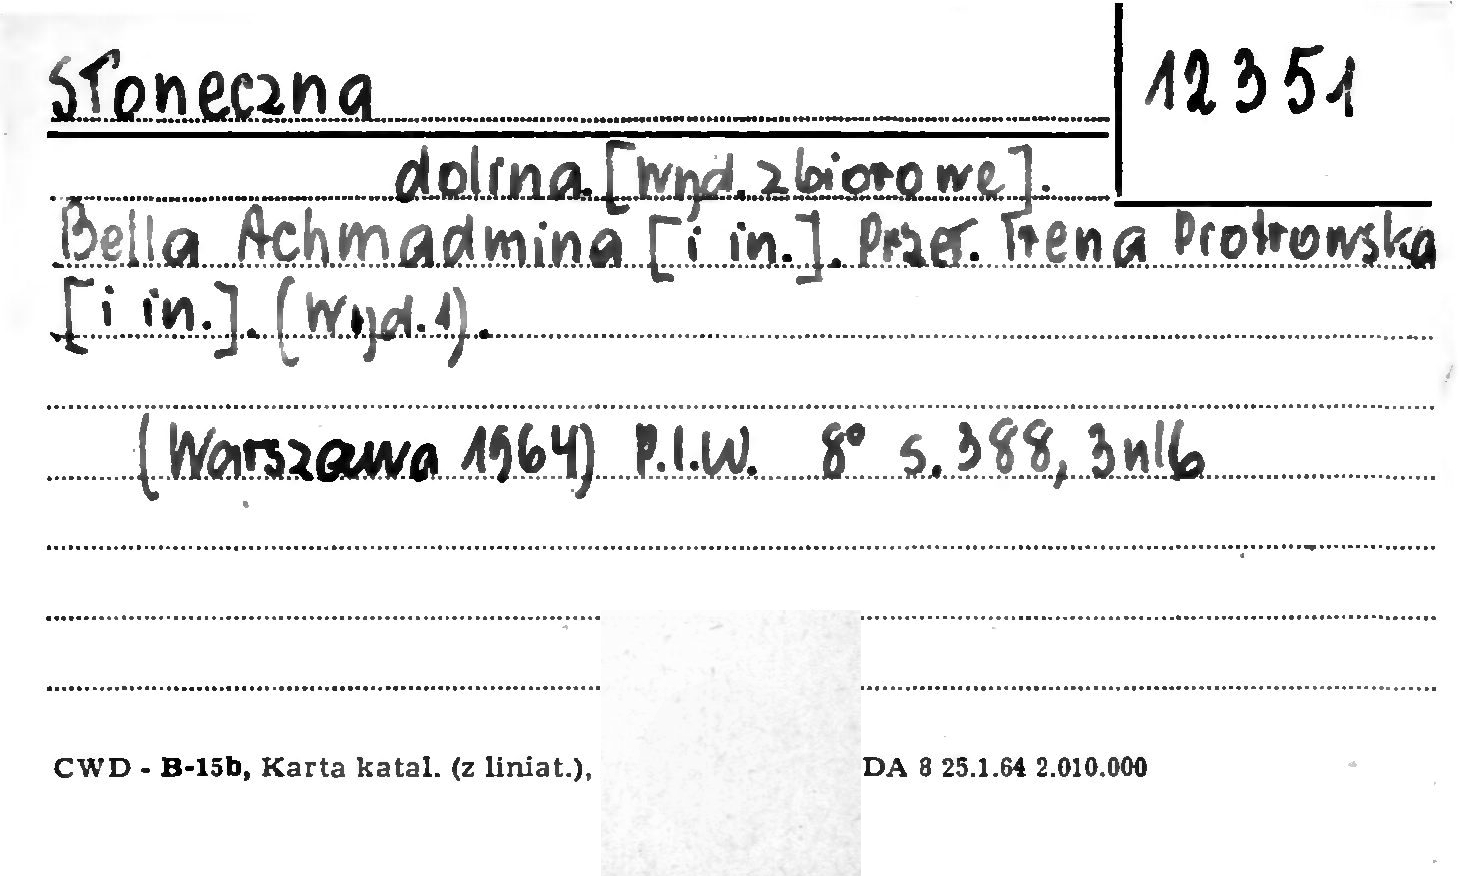 Słoneczna
12351
dolina [wyd. zbiorowe].
Bella Achmadmina [i in.]. Przeł. Irena Piotrowska
[i in.]. (Wyd. 1).
(Warszawa 1964) P.I.W. 8° s. 388, 3 nlb
CWD - B-15b, Karta katal. (z liniat.), DA 8 25.1.64 2.010.000